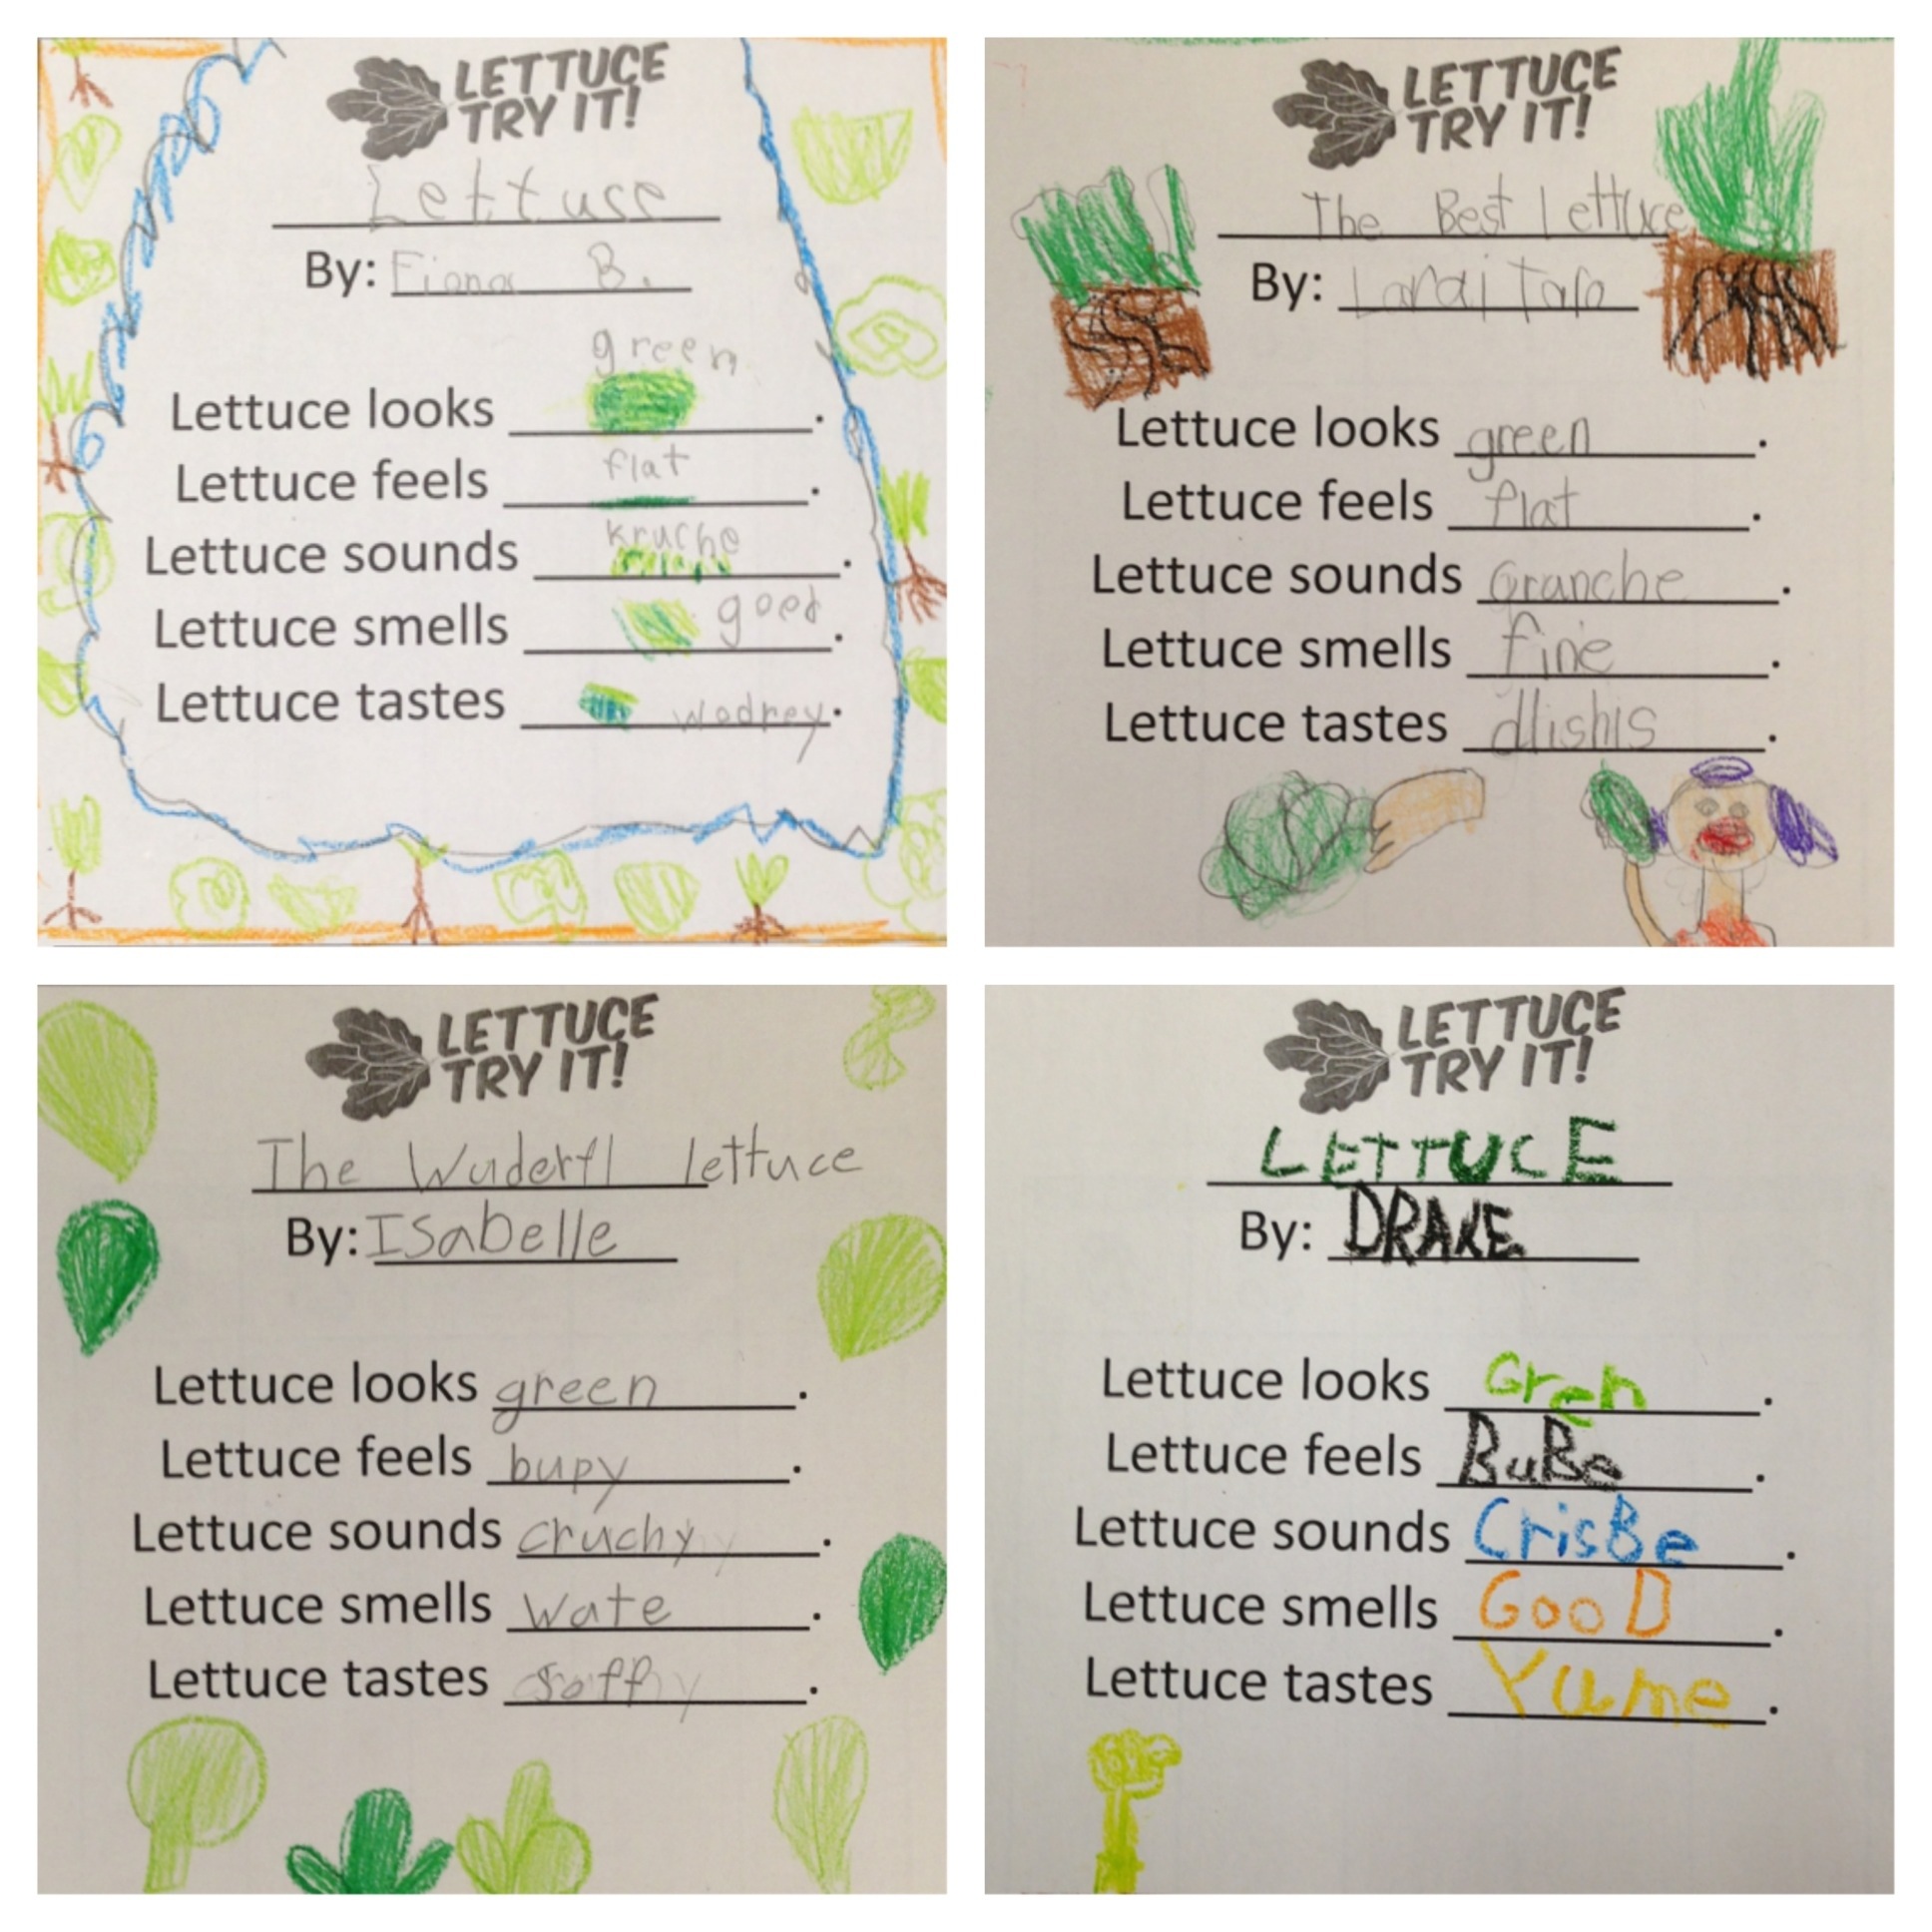 LETTUCE
TRY IT!
Lettuse
By: Fiona B.
green
Lettuce looks .
flat
Lettuce feels .
kruche
Lettuce sounds .
Lettuce smells good.
Lettuce tastes wodrey.
LETTUCE
TRY IT!
The Best Lettuce
By:
Lettuce looks green.
Lettuce feels flat.
Lettuce sounds Cranche.
Lettuce smells fine.
Lettuce tastes dlishis.
LETTUCE
TRY IT!
The Wuderfl lettuce
By: ISabelle
Lettuce looks green.
Lettuce feels bupy.
Lettuce sounds cruchy.
Lettuce smells wate.
Lettuce tastes .
LETTUCE
TRY IT!
LETTUCE
By: DRAKE
Lettuce looks Gren.
Lettuce feels BuBe.
Lettuce sounds CrisBe.
Lettuce smells GooD.
Lettuce tastes Yume.